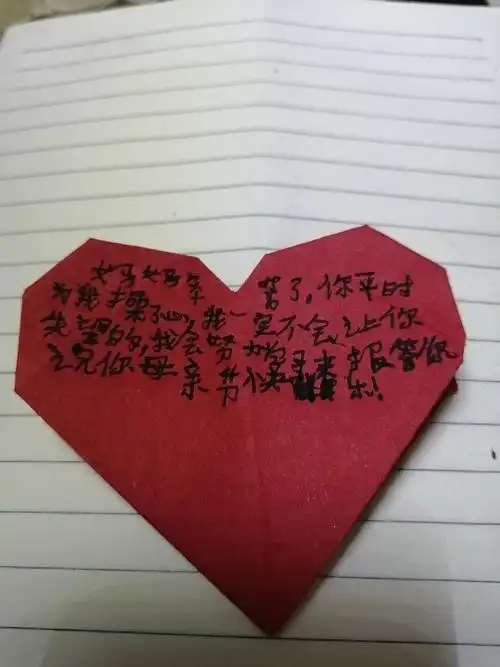 妈妈辛苦了，你平时
为我操了心，我一定不会让你
失望的，我会努力来报答你
祝你母亲节快乐！